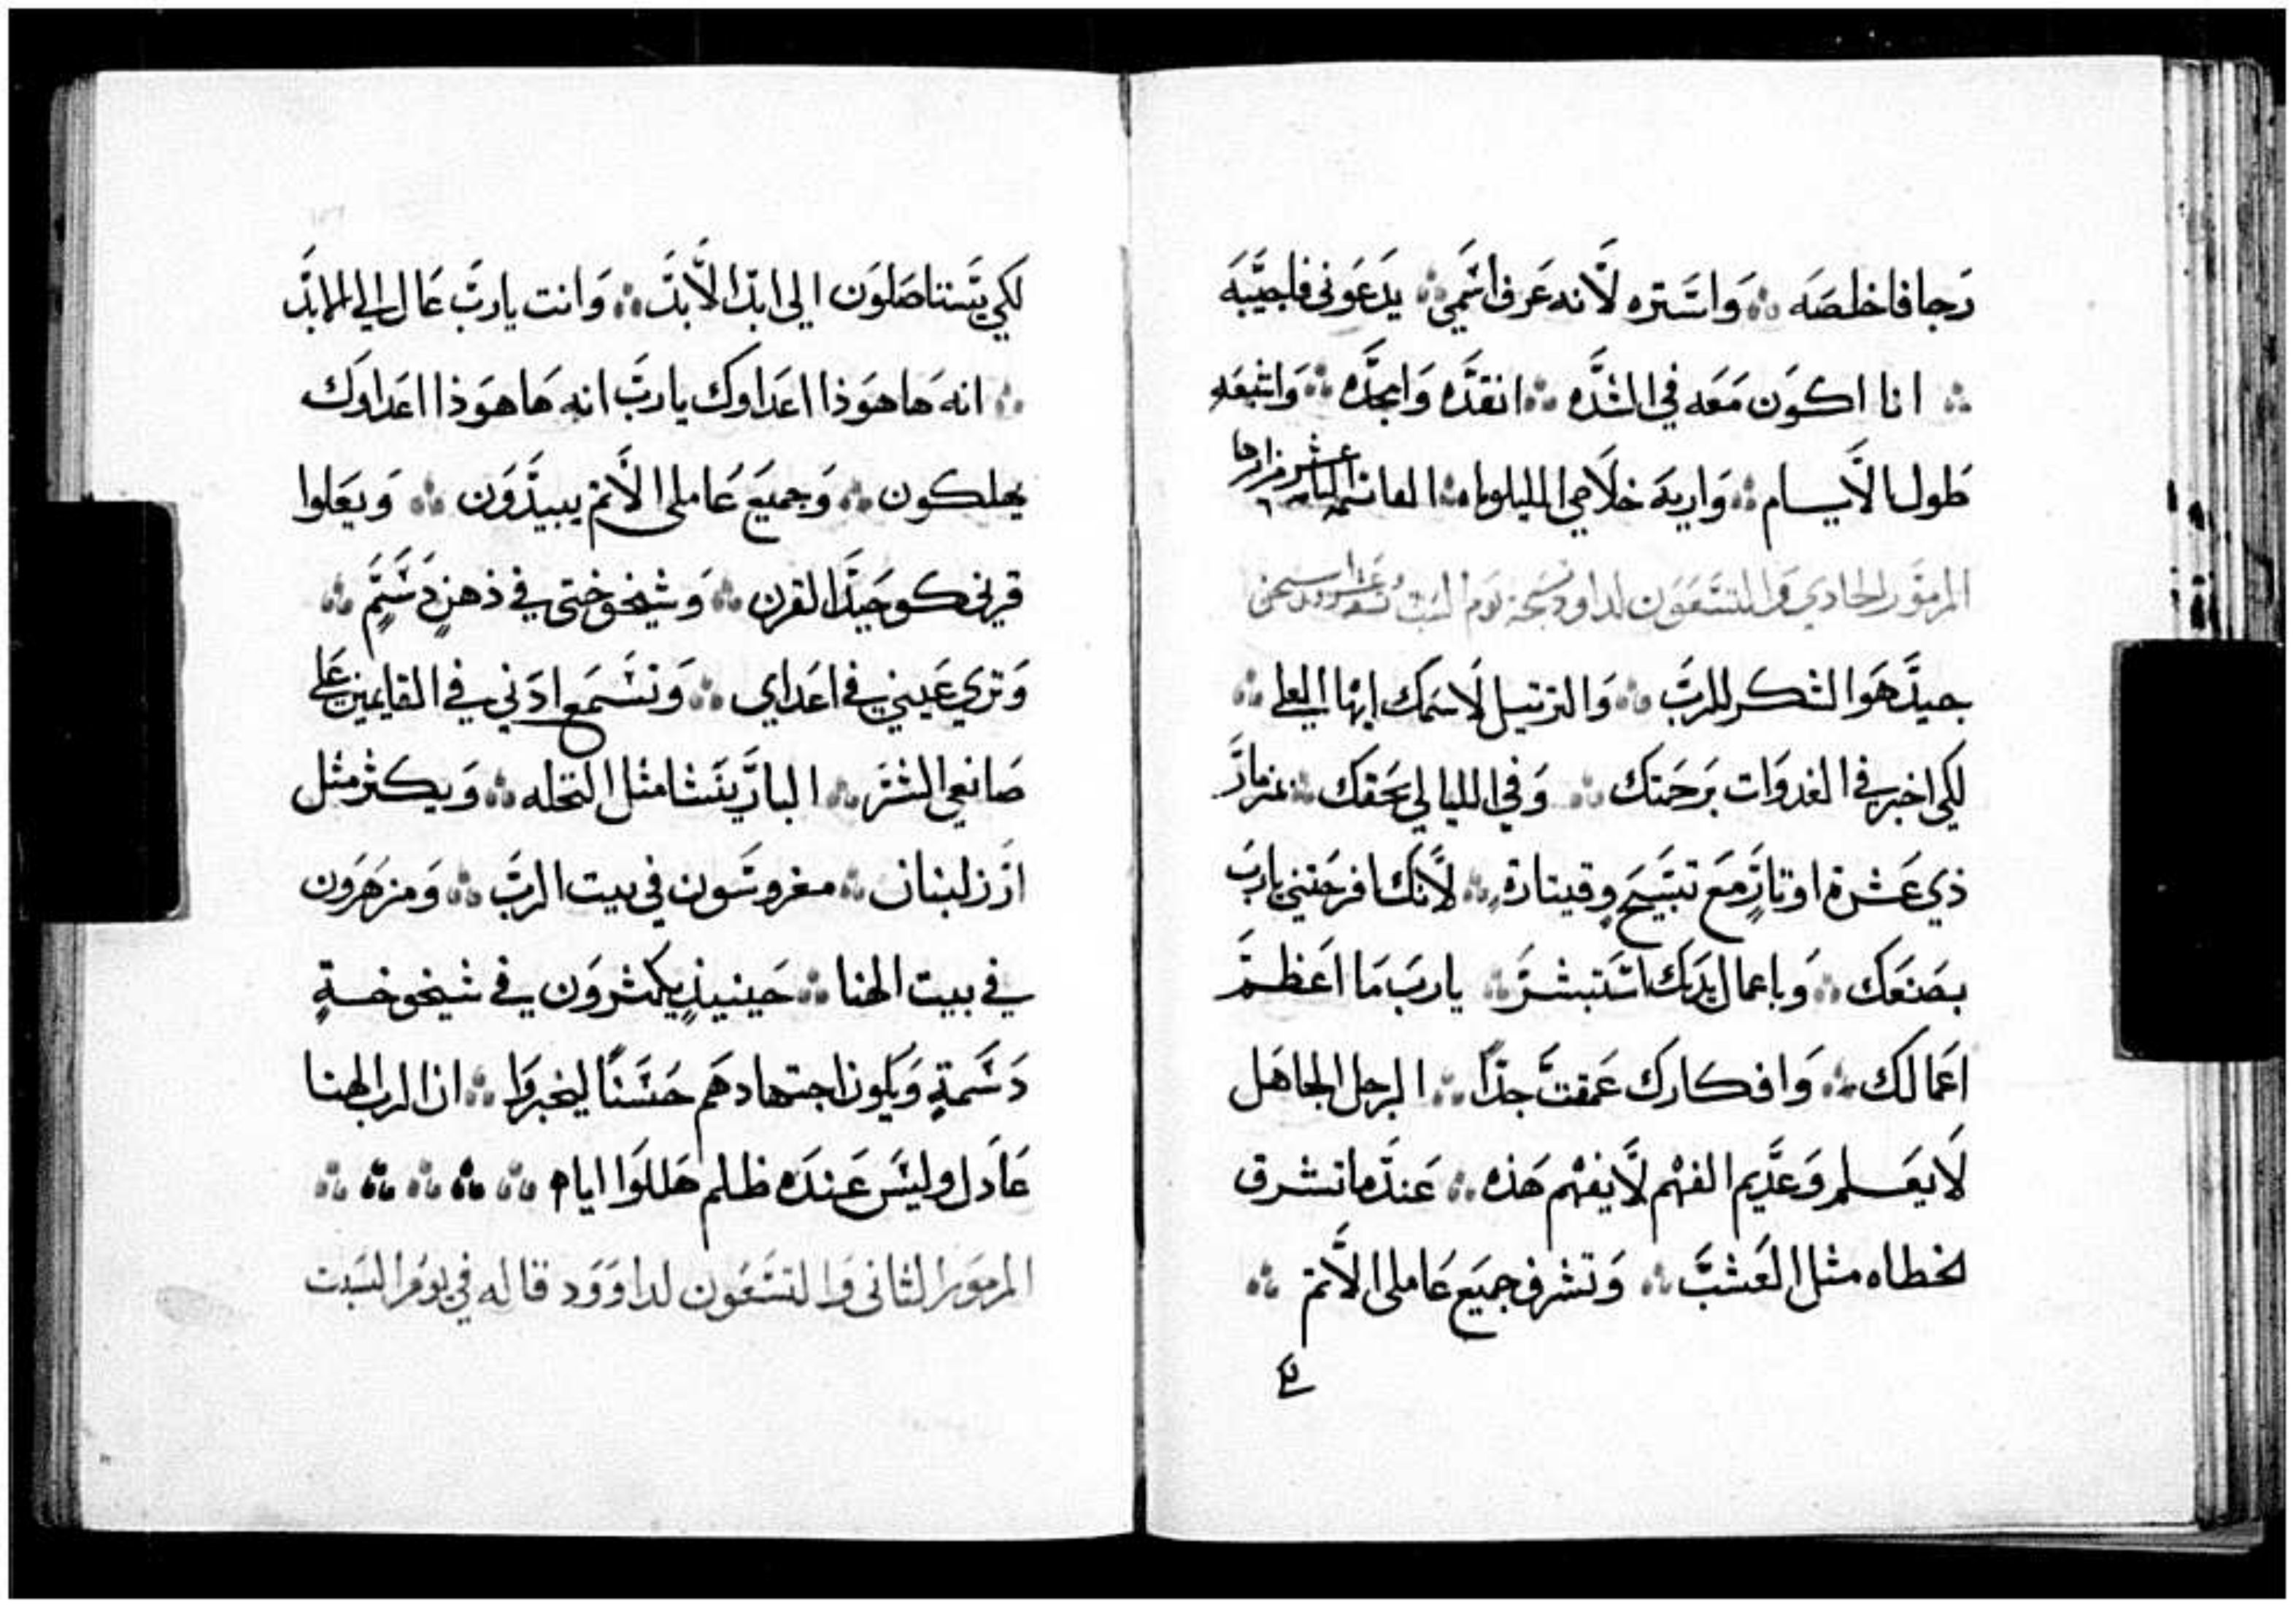 رجا فاخلصه ܀ واستره لانه عرف اسمي ܀ يدعوني فاجيبه
܀ انا اكون معه في الشده ܀ انقده وامجده ܀ واشبعه
طول الايام ܀ واريه خلاصي الليلويا ܀
المزمور الحادي والتسعون لداود تسبحة يوم السبت
جيد هو الشكر للرب ܀ والترتيل لاسمك ايها العلي ܀
لكي اخبر في الغدوات برحمتك ܀ وفي الليالي بحقك ܀ بمزمار
ذي عشرة اوتار مع تسبيح وقيتارة ܀ لانك افرحتني يا رب
بصنعك ܀ وباعمال يديك استبشر ܀ يا رب ما اعظم
اعمالك ܀ وافكارك عمقت جدا ܀ الرجل الجاهل
لا يعلم وعديم الفهم لا يفهم هذه ܀ عندما تشرق
الخطاه مثل العشب ܀ وتشرف جميع عاملي الاثم ܀
لكي
لكي يستاصلون الى ابد الابد ܀ وانت يا رب عال الي الابد
܀ انه ها هوذا اعداوك يا رب انه ها هوذا اعداوك
يهلكون ܀ وجميع عاملي الاثم يبيدون ܀ ويعلوا
قرني كوحيد القرن ܀ وشيخوختي في ذهن دسم ܀
وتري عيني في اعداي ܀ وتسمع ادني في القايمين علي
صانعي الشر ܀ البار ينشا مثل النخله ܀ ويكثر مثل
ارز لبنان ܀ مغروسون في بيت الرب ܀ ومزهرون
في بيت الهنا ܀ حينيذ يكثرون في شيخوخة
دسمة ويكون اجتهادهم حسنا ليخبروا ܀ ان الرب الهنا
عادل وليس عنده ظلم هللوا ايام ܀ ܀ ܀ ܀ ܀
المزمور الثاني والتسعون لداوود قاله في يوم السبت